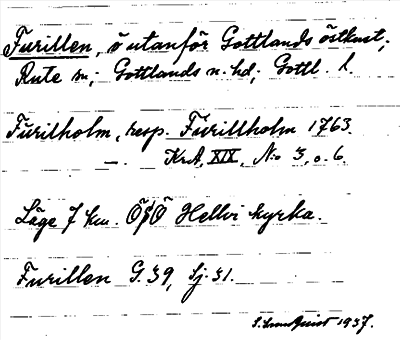 Furillen, ö utanför Gottlands östkust;
Rute sn; Gottlands n. hd; Gottl. l.
Furilholm, resp. Furillholm 1763.
—. KrA, XIX, No 3, o. 6.
Läge 7 km. ÖSÖ Hellvi kyrka.
Furillen G. 39, Sj. 31.
S. Lundquist 1937.